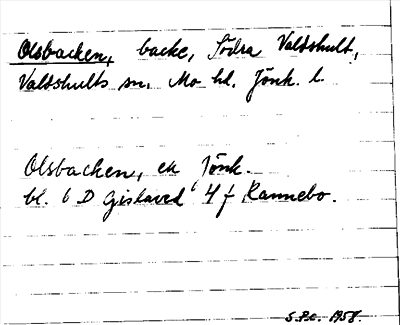 Olsbacken, backe, Södra Valdshult,
Valdshults sn. Mo hd. Jönk. l.
Olsbacken, ek Jönk.
bl. 6 D Gislaved 4 f Rannebo.
S.P.c. 1958.